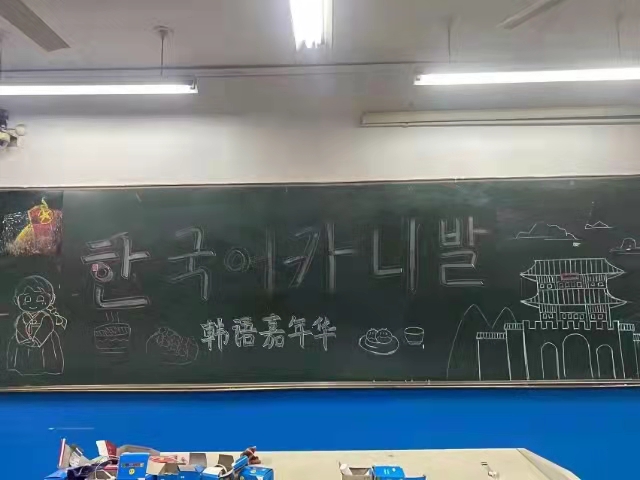 한국어카니발
韩语嘉年华